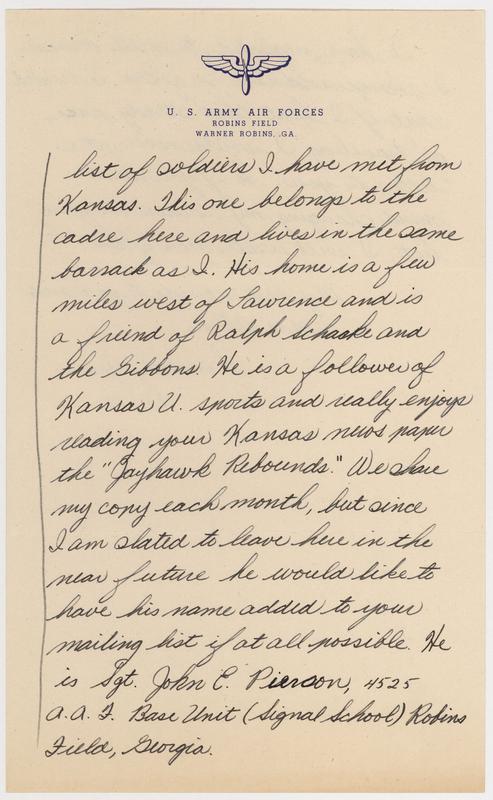 U. S. ARMY AIR FORCES
ROBINS FIELD
WARNER ROBINS, GA.
list of soldiers I have met from
Kansas. This one belongs to the
cadre here and lives in the same
barrack as I. His home is a few
miles west of Lawrence and is
a freind of Ralph Schaake and
the Gibbons. He is a follower of
Kansas U. sports and really enjoys
reading your Kansas news paper
the "Jayhawk Rebounds." We share
my copy each month, but since
I am slated to leave here in the
near future he would like to
have his name added to your
mailing list if at all possible. He
is Sgt. John E. Pierson, 4525
A.A.F. Base Unit (Signal School) Robins
Field, Georgia.